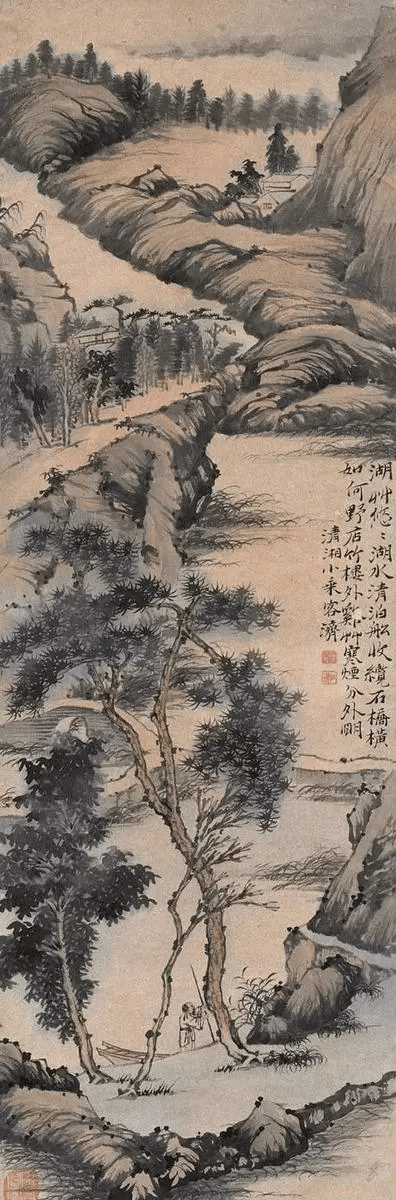 湖艸悠〻湖水清泊船收纜石橋橫
如何野店竹樓外䕫艸寒煙分外明
清湘小乘客濟